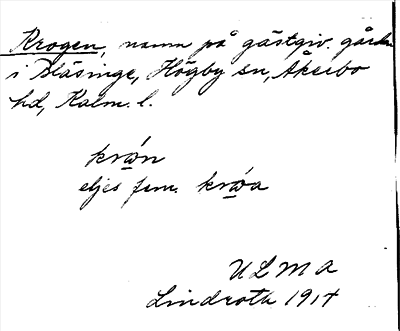 Krogen, namn på gästgiv. gården
i Bläsinge, Högby sn, Åkerbo
hd, Kalm. l.
krón
eljes fem. króa
ULMA
Lindroth 1914